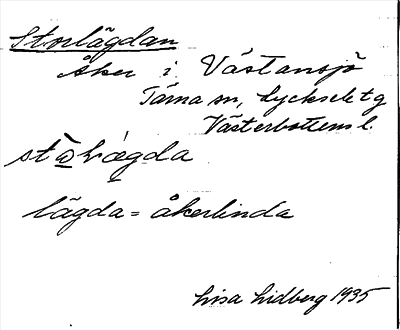 Storlägdan
Åker i Västansjö
Tärna sn, Lycksele tg
Västerbottens l.
lägda = åkerlinda
Lisa Lidberg 1935